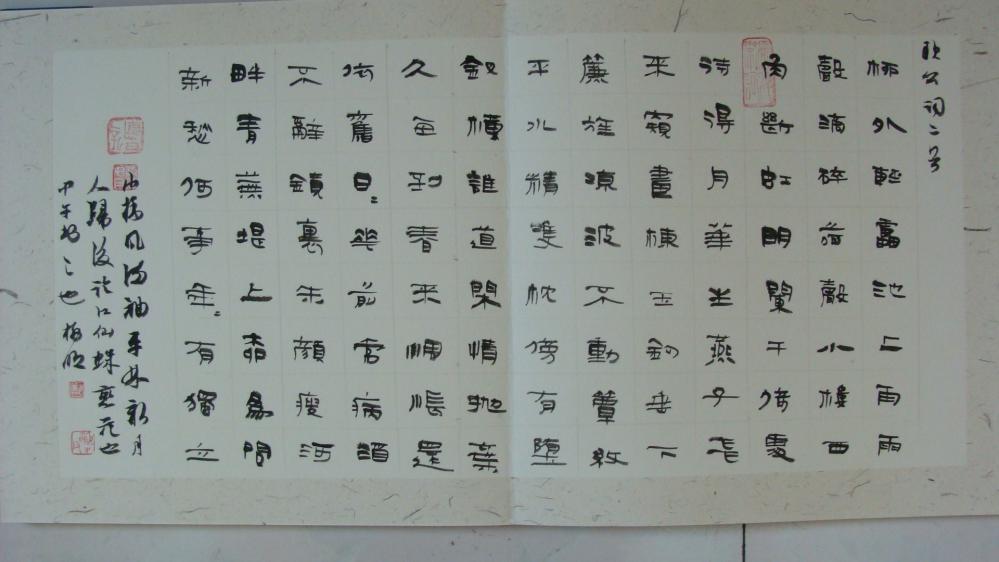 欧公词二首
柳外輕雷池上雨雨
聲滴碎荷聲小樓西
角斷虹明闌干倚處
待得月華生燕子飛
來窺畫棟玉鉤垂下
簾旌涼波不動簟紋
平水精雙枕傍有墮
釵橫誰道閑情拋棄
久每到春來惆悵還
依舊日〻花前常病酒
不辭鏡裏朱顏瘦河
畔青蕪堤上柳為問
新愁何事年〻有獨立
小橋風滿袖平林新月
人歸後詠江仙蝶戀花也
甲午